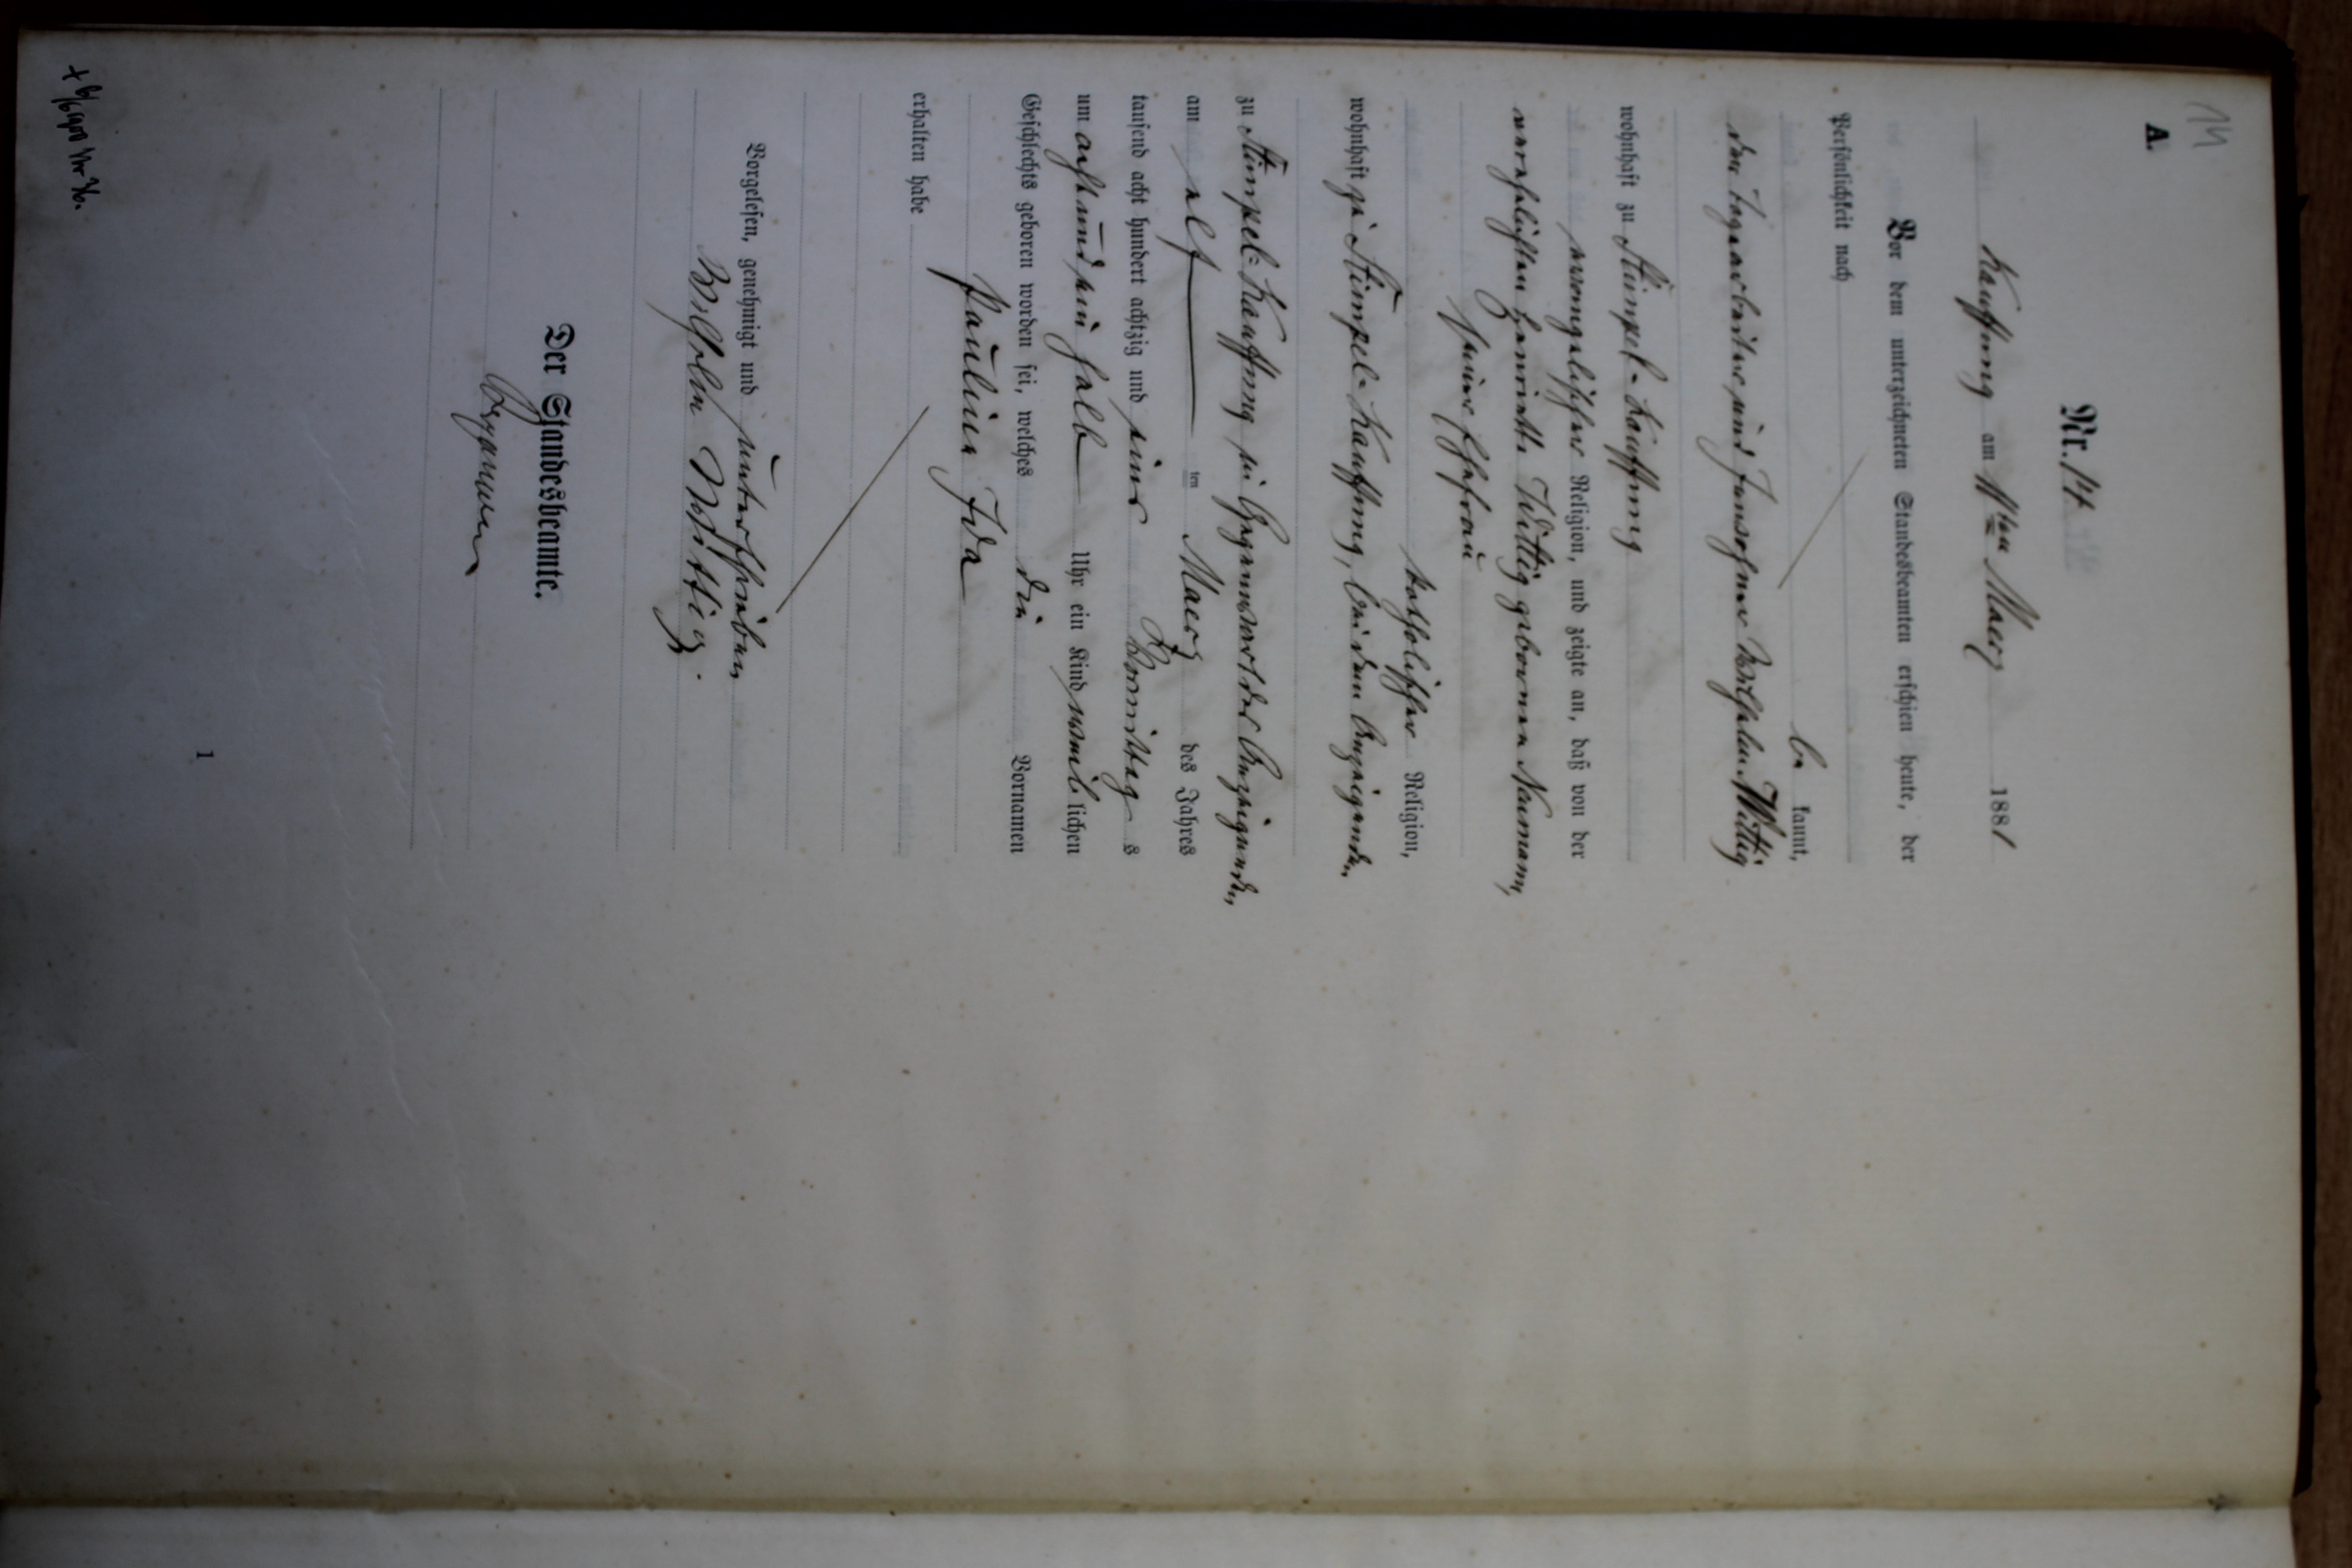 14
A.
Nr. 14
Kauffung am 11ten Maerz 1881
Vor dem unterzeichneten Standesbeamten erschien heute, der
Persönlichkeit nach
be kannt,
der Tagearbeiter und Hausgenosse Wilhelm Wittig
wohnhaft zu Stimpel-Kauffung
evangelischer Religion, und zeigte an, daß von der
verehelichten Henriette Wittig geborenen Naumann,
seiner Ehefrau
katholischer Religion,
wohnhaft zu Stimpel-Kauffung, bei dem Anzeigenden,
zu Stimpel-Kauffung in Gegenwart des Anzeigenden,
am elf ten Maerz des Jahres
tausend acht hundert achtzig und eins Vormittag s
um acht und ein halb Uhr ein Kind weib lichen
Geschlechts geboren worden sei, welches die Vornamen
Pauline Ida
erhalten habe
Vorgelesen, genehmigt und unterschrieben
Wilhelm Wittig.
Der Standesbeamte.
1